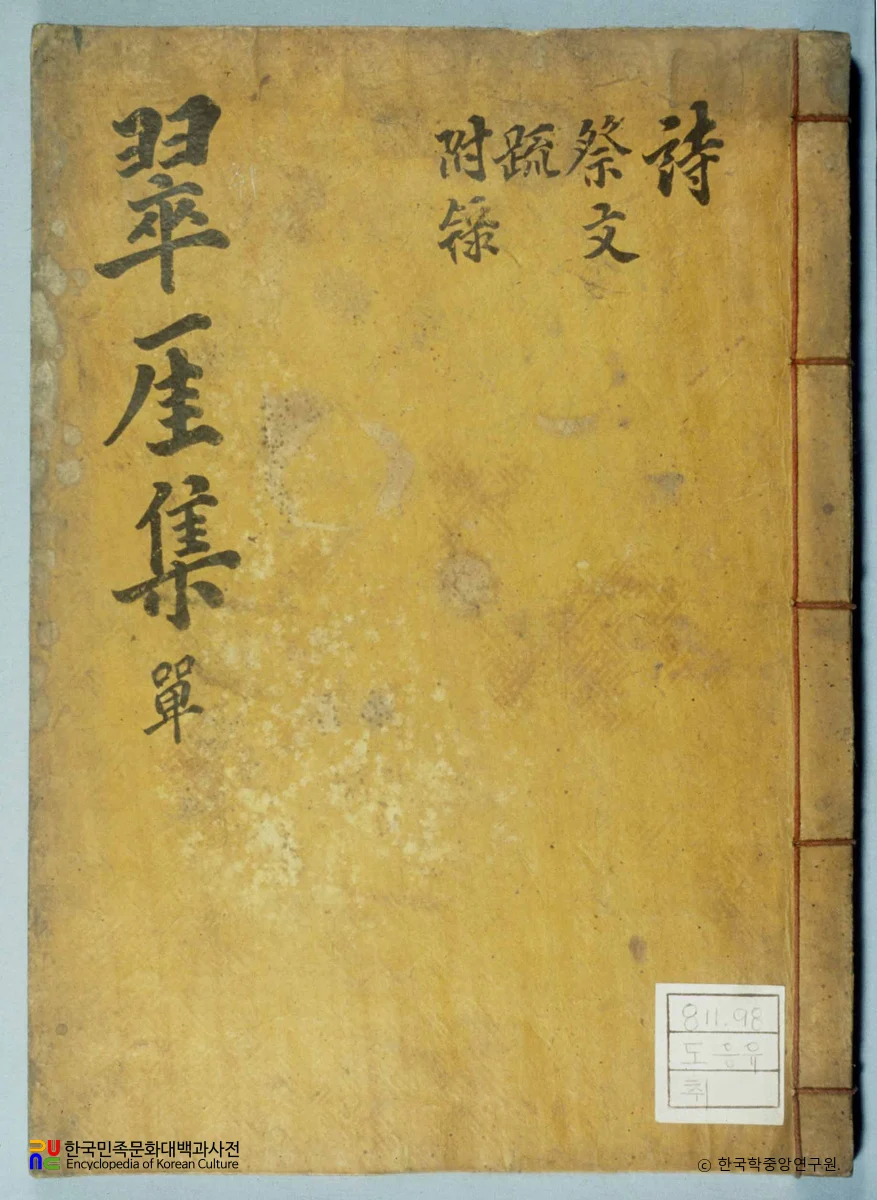 詩
祭文
疏
附錄
翠厓集 單
811.98
도응유
취
한국민족문화대백과사전
Encyclopedia of Korean Culture
© 한국학중앙연구원.